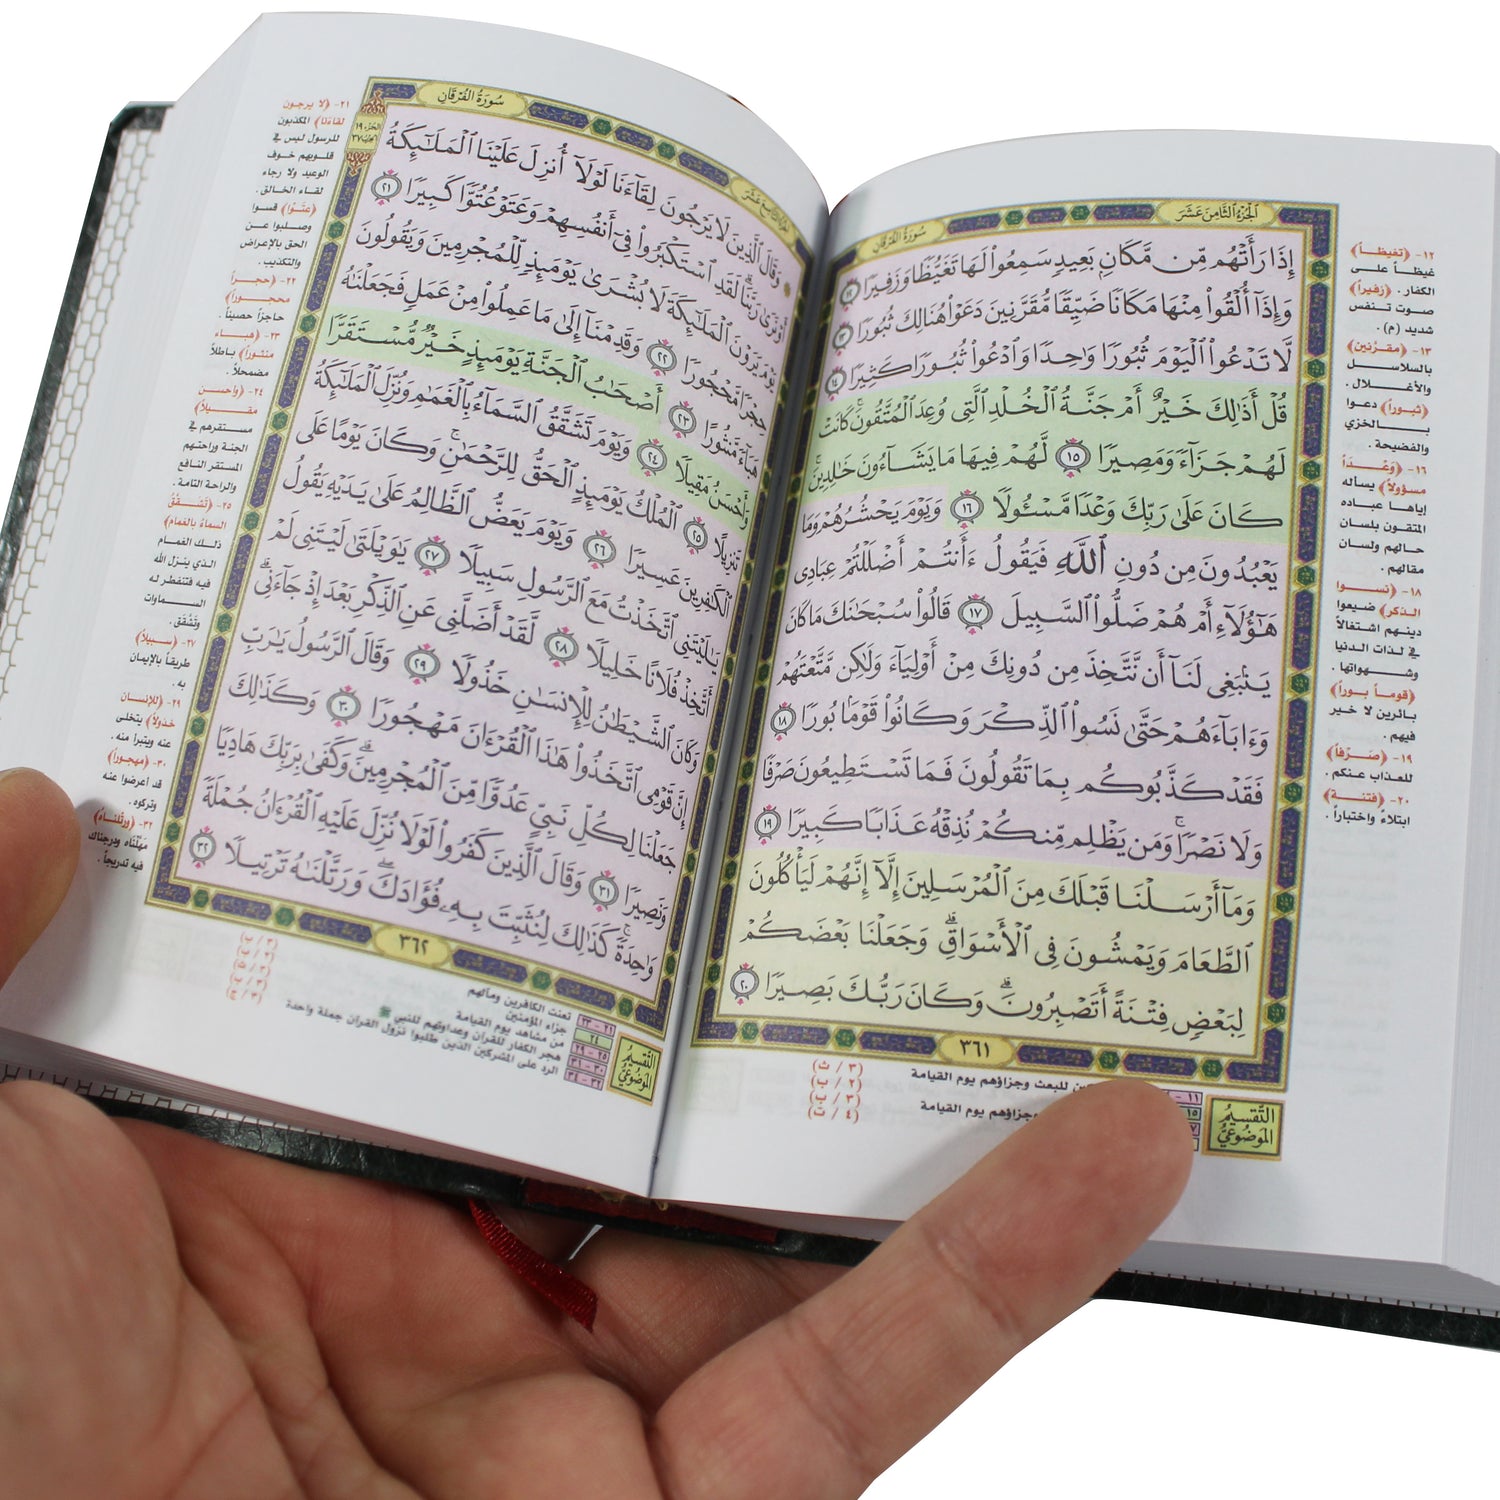 الجزء الثامن عشر
سورة الفرقان
إِذَا رَأَتْهُم مِّن مَّكَانٍۭ بَعِيدٍ سَمِعُوا۟ لَهَا تَغَيُّظًا وَزَفِيرًا ١٢
وَإِذَآ أُلْقُوا۟ مِنْهَا مَكَانًا ضَيِّقًا مُّقَرَّنِينَ دَعَوْا۟ هُنَالِكَ ثُبُورًا ١٣
لَّا تَدْعُوا۟ ٱلْيَوْمَ ثُبُورًا وَٰحِدًا وَٱدْعُوا۟ ثُبُورًا كَثِيرًا ١٤
قُلْ أَذَٰلِكَ خَيْرٌ أَمْ جَنَّةُ ٱلْخُلْدِ ٱلَّتِى وُعِدَ ٱلْمُتَّقُونَ ۚ كَانَتْ
لَهُمْ جَزَآءً وَمَصِيرًا ١٥ لَّهُمْ فِيهَا مَا يَشَآءُونَ خَٰلِدِينَ ۚ
كَانَ عَلَىٰ رَبِّكَ وَعْدًا مَّسْـُٔولًا ١٦ وَيَوْمَ يَحْشُرُهُمْ وَمَا
يَعْبُدُونَ مِن دُونِ ٱللَّهِ فَيَقُولُ ءَأَنتُمْ أَضْلَلْتُمْ عِبَادِى
هَٰٓؤُلَآءِ أَمْ هُمْ ضَلُّوا۟ ٱلسَّبِيلَ ١٧ قَالُوا۟ سُبْحَٰنَكَ مَا كَانَ
يَنۢبَغِى لَنَآ أَن نَّتَّخِذَ مِن دُونِكَ مِنْ أَوْلِيَآءَ وَلَٰكِن مَّتَّعْتَهُمْ
وَءَابَآءَهُمْ حَتَّىٰ نَسُوا۟ ٱلذِّكْرَ وَكَانُوا۟ قَوْمًۢا بُورًا ١٨
فَقَدْ كَذَّبُوكُم بِمَا تَقُولُونَ فَمَا تَسْتَطِيعُونَ صَرْفًا
وَلَا نَصْرًا ۚ وَمَن يَظْلِم مِّنكُمْ نُذِقْهُ عَذَابًا كَبِيرًا ١٩
وَمَآ أَرْسَلْنَا قَبْلَكَ مِنَ ٱلْمُرْسَلِينَ إِلَّآ إِنَّهُمْ لَيَأْكُلُونَ
ٱلطَّعَامَ وَيَمْشُونَ فِى ٱلْأَسْوَاقِ ۗ وَجَعَلْنَا بَعْضَكُمْ
لِبَعْضٍ فِتْنَةً أَتَصْبِرُونَ ۗ وَكَانَ رَبُّكَ بَصِيرًا ٢٠
٣٦١
١٢- ﴿تغيظاً﴾
غيظاً على
الكفار .
﴿زفيراً﴾
صوت تنفس
شديد (م) .
١٣- ﴿مقرنين﴾
بالسلاسل
والأغلال .
﴿ثبوراً﴾ دعوا
بالخزي
والفضيحة .
١٦- ﴿وعداً
مسؤولاً﴾ يسأله
إياها عباده
المتقون بلسان
حالهم ولسان
مقالهم .
١٨- ﴿نسوا
الذكر﴾ ضيعوا
دينهم اشتغالاً
في لذات الدنيا
وشهواتها .
﴿قوماً بوراً﴾
بائرين لا خير
فيهم .
١٩- ﴿صرفاً﴾
للعذاب عنكم .
٢٠- ﴿فتنة﴾
ابتلاءً واختباراً .
التقسيم
الموضوعي
للبعث وجزاؤهم يوم القيامة
وجزاؤهم يوم القيامة
الجزء التاسع عشر
سورة الفرقان
الجزء ١٩
الحزب ٣٧
وَقَالَ ٱلَّذِينَ لَا يَرْجُونَ لِقَآءَنَا لَوْلَآ أُنزِلَ عَلَيْنَا ٱلْمَلَٰٓئِكَةُ
أَوْ نَرَىٰ رَبَّنَا ۗ لَقَدِ ٱسْتَكْبَرُوا۟ فِىٓ أَنفُسِهِمْ وَعَتَوْ عُتُوًّا كَبِيرًا ٢١
يَوْمَ يَرَوْنَ ٱلْمَلَٰٓئِكَةَ لَا بُشْرَىٰ يَوْمَئِذٍ لِّلْمُجْرِمِينَ وَيَقُولُونَ
حِجْرًا مَّحْجُورًا ٢٢ وَقَدِمْنَآ إِلَىٰ مَا عَمِلُوا۟ مِنْ عَمَلٍ فَجَعَلْنَٰهُ
هَبَآءً مَّنثُورًا ٢٣ أَصْحَٰبُ ٱلْجَنَّةِ يَوْمَئِذٍ خَيْرٌ مُّسْتَقَرًّا
وَأَحْسَنُ مَقِيلًا ٢٤ وَيَوْمَ تَشَقَّقُ ٱلسَّمَآءُ بِٱلْغَمَٰمِ وَنُزِّلَ ٱلْمَلَٰٓئِكَةُ
تَنزِيلًا ٢٥ ٱلْمُلْكُ يَوْمَئِذٍ ٱلْحَقُّ لِلرَّحْمَٰنِ ۚ وَكَانَ يَوْمًا عَلَى
ٱلْكَٰفِرِينَ عَسِيرًا ٢٦ وَيَوْمَ يَعَضُّ ٱلظَّالِمُ عَلَىٰ يَدَيْهِ يَقُولُ
يَٰلَيْتَنِى ٱتَّخَذْتُ مَعَ ٱلرَّسُولِ سَبِيلًا ٢٧ يَٰوَيْلَتَىٰ لَيْتَنِى لَمْ
أَتَّخِذْ فُلَانًا خَلِيلًا ٢٨ لَّقَدْ أَضَلَّنِى عَنِ ٱلذِّكْرِ بَعْدَ إِذْ جَآءَنِى ۗ
وَكَانَ ٱلشَّيْطَٰنُ لِلْإِنسَٰنِ خَذُولًا ٢٩ وَقَالَ ٱلرَّسُولُ يَٰرَبِّ
إِنَّ قَوْمِى ٱتَّخَذُوا۟ هَٰذَا ٱلْقُرْءَانَ مَهْجُورًا ٣٠ وَكَذَٰلِكَ
جَعَلْنَا لِكُلِّ نَبِىٍّ عَدُوًّا مِّنَ ٱلْمُجْرِمِينَ ۗ وَكَفَىٰ بِرَبِّكَ هَادِيًا
وَنَصِيرًا ٣١ وَقَالَ ٱلَّذِينَ كَفَرُوا۟ لَوْلَا نُزِّلَ عَلَيْهِ ٱلْقُرْءَانُ جُمْلَةً
وَٰحِدَةً ۚ كَذَٰلِكَ لِنُثَبِّتَ بِهِۦ فُؤَادَكَ ۖ وَرَتَّلْنَٰهُ تَرْتِيلًا ٣٢
٣٦٢
٢١- ﴿لا يرجون
لقاءنا﴾ المكذبون
للرسول ليس في
قلوبهم خوف
الوعيد ولا رجاء
لقاء الخالق .
﴿عتوا﴾ قسوا
وصلبوا عن
الحق بالإعراض
والتكذيب .
٢٢- ﴿حجراً
محجوراً﴾
حاجزاً حصيناً .
٢٣- ﴿هباء
منثوراً﴾ باطلاً
مضمحلاً .
٢٤- ﴿وأحسن
مقيلاً﴾
مستقرهم في
الجنة وراحتهم
المستقر النافع
والراحة التامة .
٢٥- ﴿تشقق
السماء بالغمام﴾
ذلك الغمام
الذي ينزل الله
فيه فتنفطر له
السماوات
وتشقق .
٢٧- ﴿سبيلاً﴾
طريقاً بالإيمان
به .
٢٩- ﴿للإنسان
خذولاً﴾ يتخلى
عنه ويتبرأ منه .
٣٠- ﴿مهجوراً﴾
قد أعرضوا عنه
وتركوه .
٣٢- ﴿ورتلناه﴾
مهلناه ودرجناك
فيه تدريجاً .
التقسيم
الموضوعي
٢١ - ٢٣ تعنت الكافرين ومآلهم
٢٤ جزاء المؤمنين
٢٥ - ٢٩ من مشاهد يوم القيامة
٣٠ - ٣١ هجر الكفار للقرآن وعداوتهم للنبي ﷺ
٣٢ - ٣٤ الرد على المشركين الذين طلبوا نزول القرآن جملة واحدة